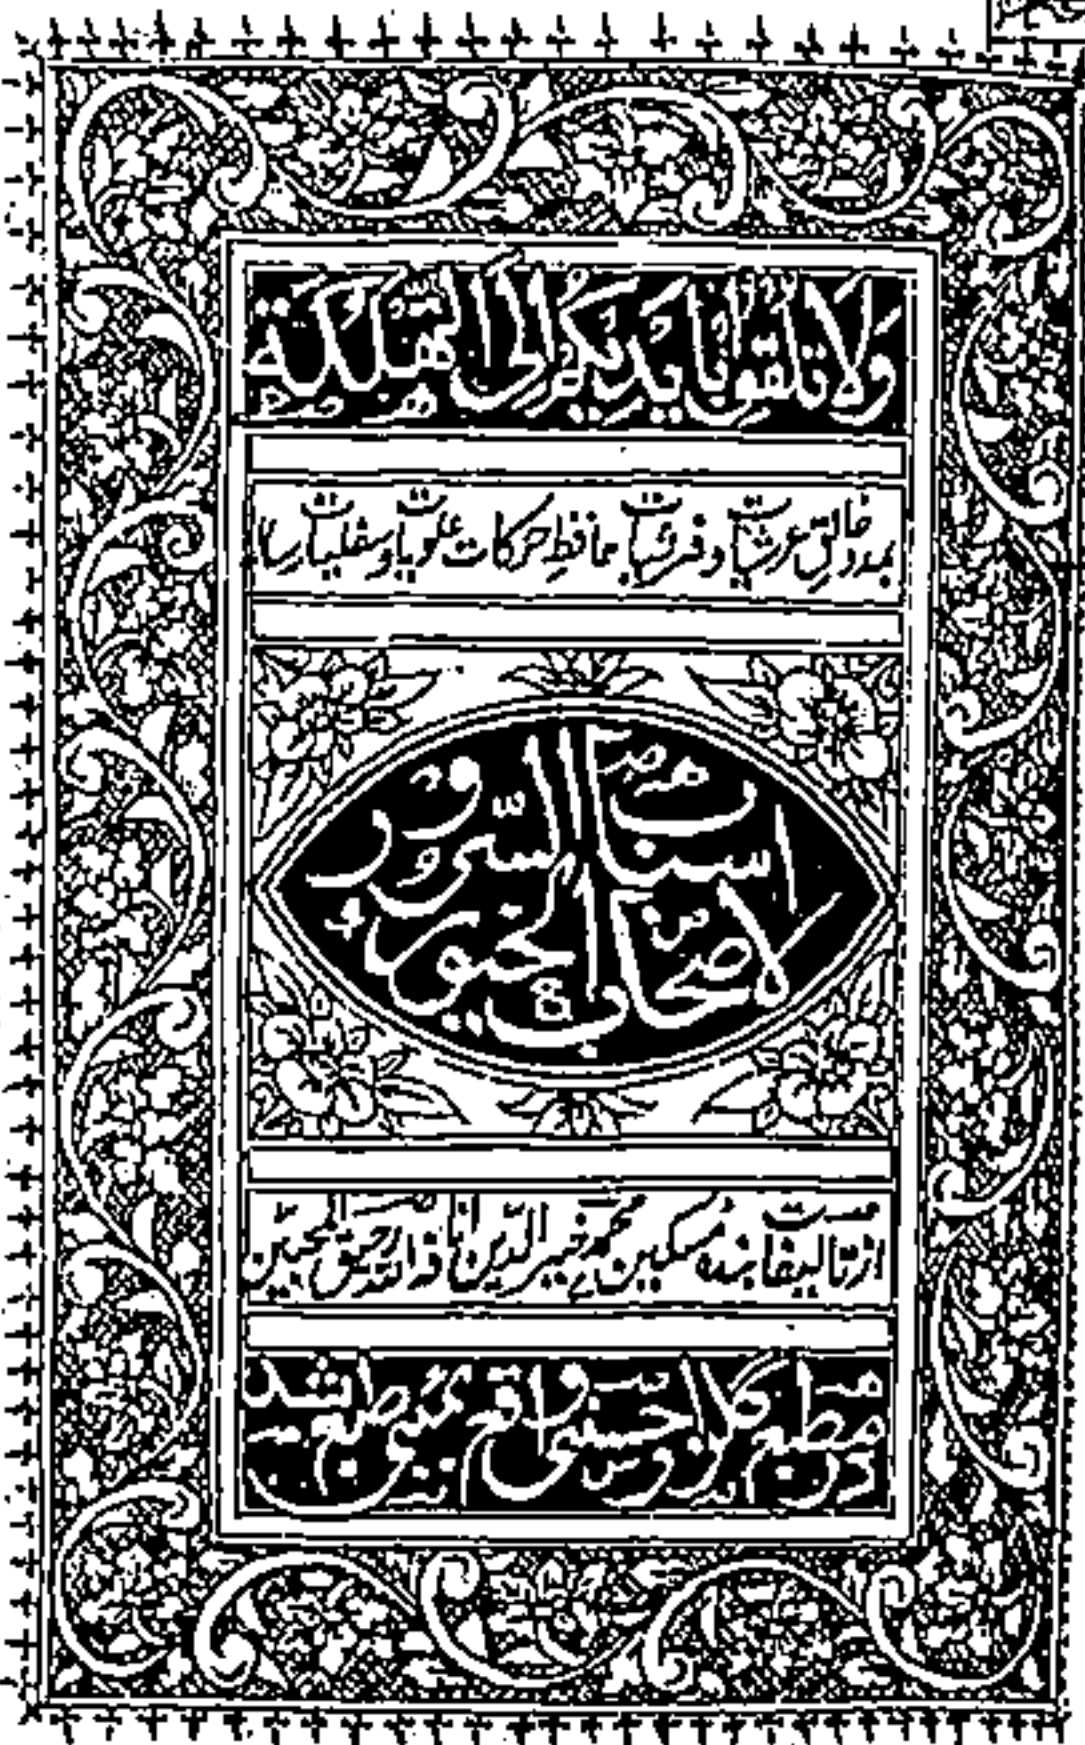 ولا تلقوا بایدیکم الی التهلکة
بمدد خالق عرشیات و فرشیات حافظ حرکات علویات و سفلیات رسالہ
اسناد السرور
لاصحاب الخیور
از تالیفات بندہ مسکین محمد خیر الدین اذاقه اللہ رحیق المحبین
در مطبع گلزار حسنی واقع بمبئی طبع شد